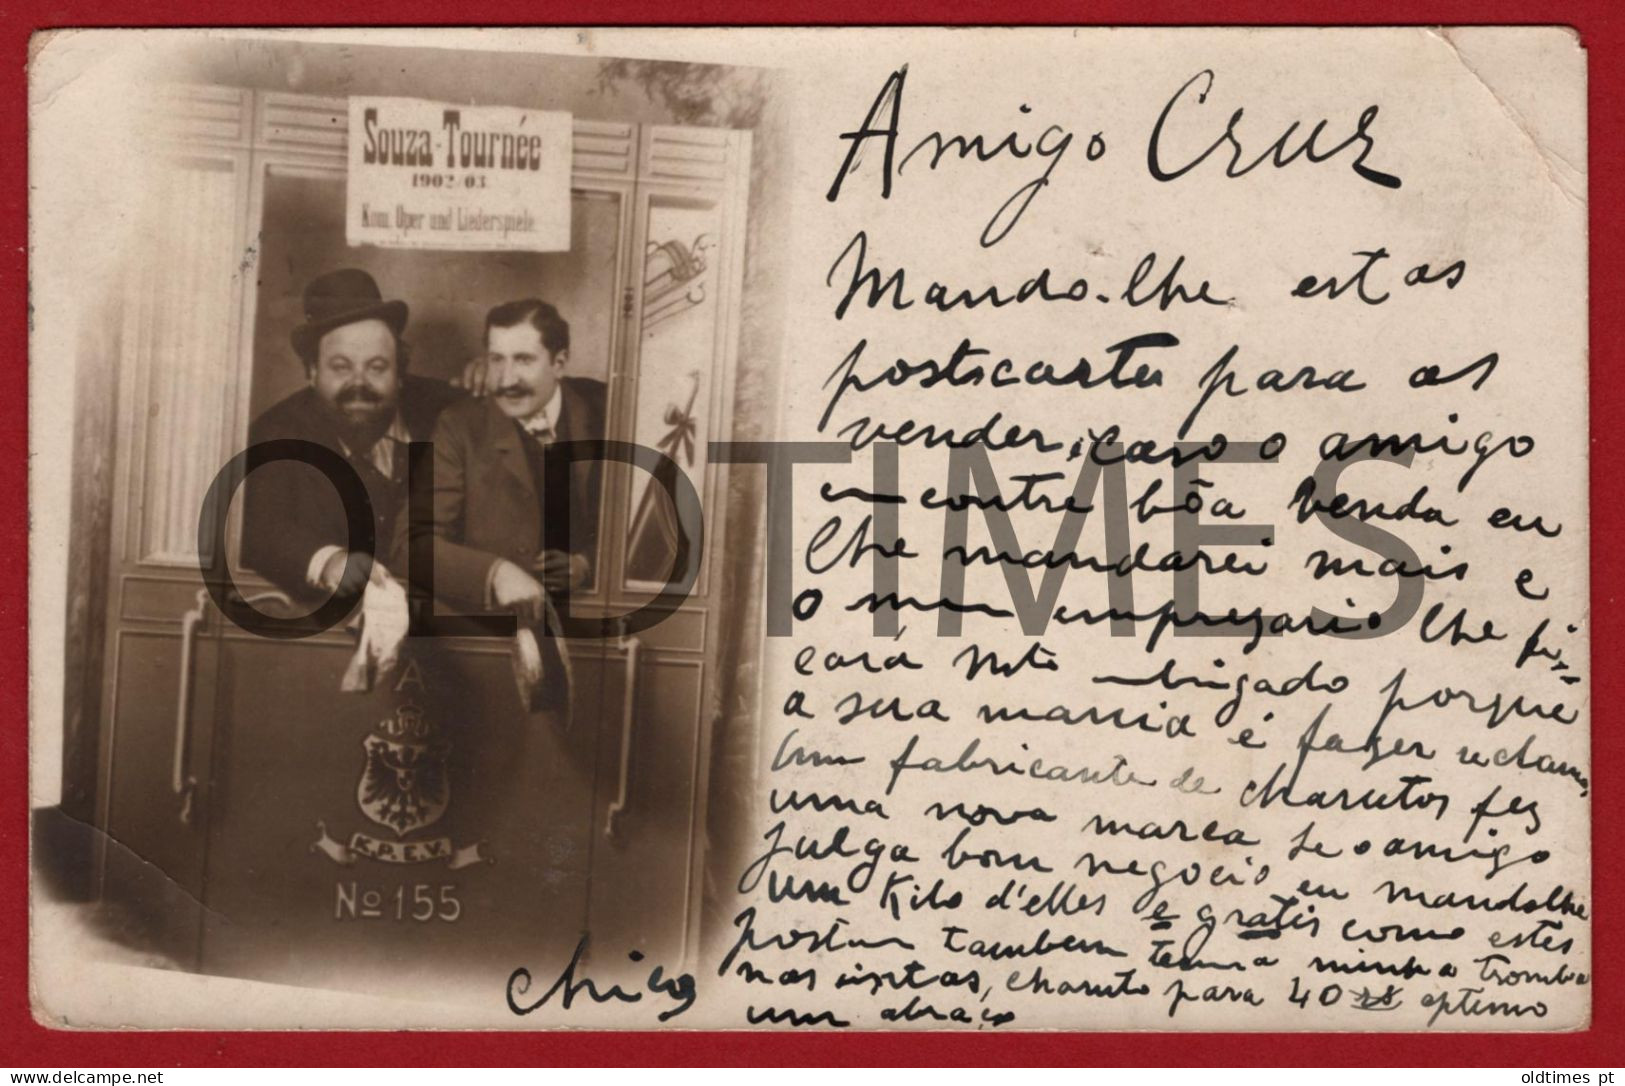 Souza-Tournée
1902/03
Kom. Oper und Liederspiele.
A
K.P.E.V.
No 155
Amigo Cruz
Mando-lhe estas
postscartes para as
vender, caso o amigo
encontre bôa venda eu
lhe mandarei mais e
o meu empresario lhe fi-
cará mto obrigado porque
a sua mania é fazer reclame,
Um fabricante de charutos fez
uma nova marca se o amigo
julga bom negocio eu mandolhe
um Kilo d'elles e gratis como estes
tambem minha tromba
nas cintas, charuto para 40 rs optimo
um abraço
Chico
OLDTIMES
delcampe.net
oldtimes pt